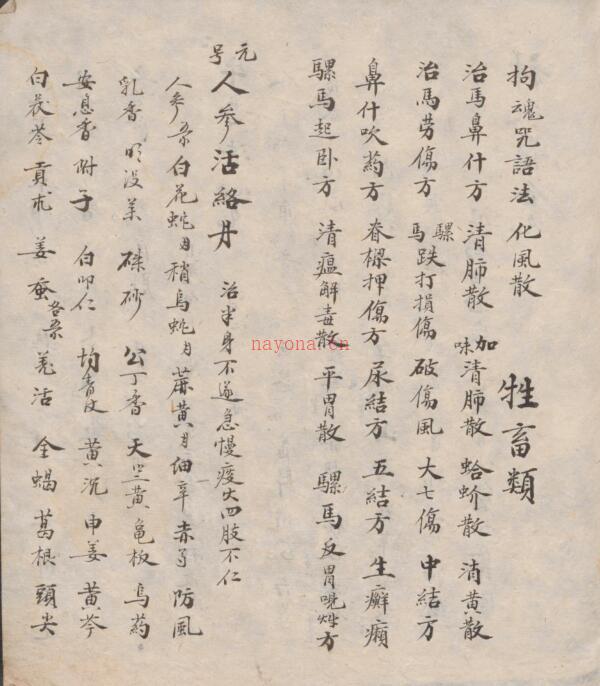 拘魂咒語法 化風散 牲畜類
治馬鼻什方 清肺散 加味清肺散 蛤蚧散 消黄散
治馬劳傷方 騾馬跌打損傷 破傷風 大七傷 中結方
鼻什吹药方 脊樑押傷方 尿結方 五結方 生癬癩
騾馬起卧方 清瘟解毒散 平胃散 騾馬反胃 方
元号
人參活絡丹 治半身不遂急慢疫火四肢不仁
人參 白花蛇 稍乌蛇 蔴黄 细辛 赤 防風
乳香 明没 硃砂 公丁香 天竺黄 龟板 乌药
安息香 附子 白叩仁 均青皮 黄沉 申姜 黄芩
白茯苓 貢朮 姜蚕 羌活 全蝎 葛根 頭尖
nayona.cn